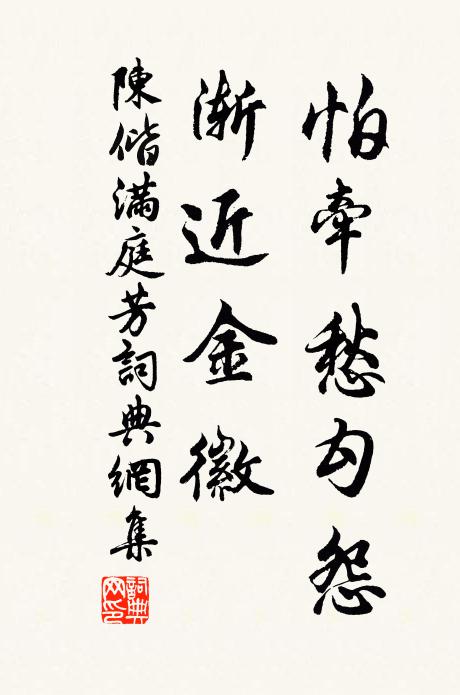 怕牽愁勾怨
漸近金徽
陳偕滿庭芳詞典網集
詞典网印